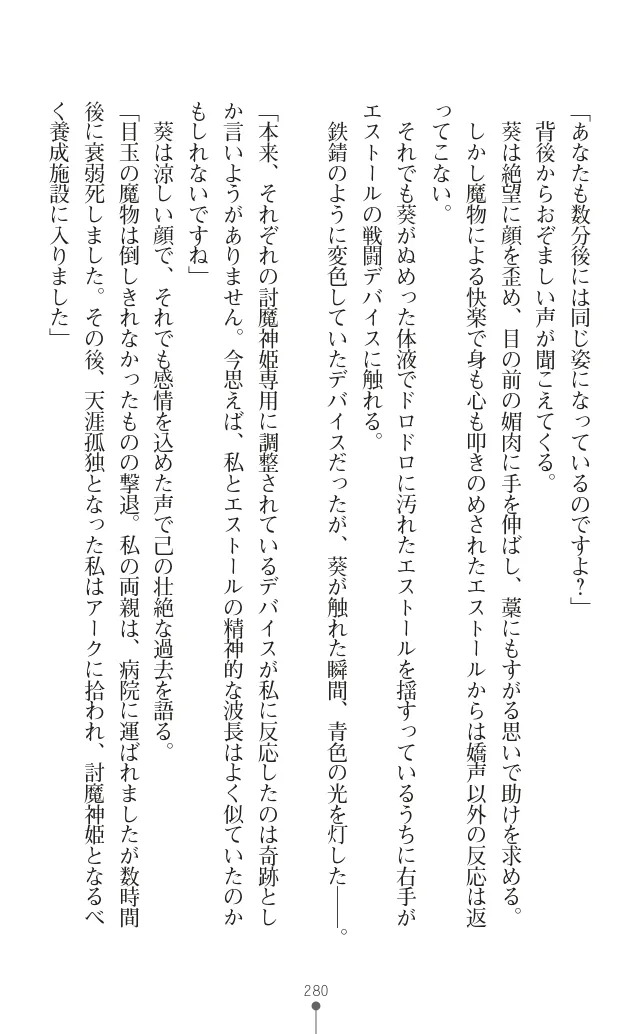 「あなたも数分後には同じ姿になっているのですよ？」
背後からおぞましい声が聞こえてくる。
葵は絶望に顔を歪め、目の前の媚肉に手を伸ばし、藁にもすがる思いで助けを求める。
しかし魔物による快楽で身も心も叩きのめされたエストールからは嬌声以外の反応は返
ってこない。
それでも葵がぬめった体液でドロドロに汚れたエストールを揺すっているうちに右手が
エストールの戦闘デバイスに触れる。
鉄錆のように変色していたデバイスだったが、葵が触れた瞬間、青色の光を灯した――。
「本来、それぞれの討魔神姫専用に調整されているデバイスが私に反応したのは奇跡とし
か言いようがありません。今思えば、私とエストールの精神的な波長はよく似ていたのか
もしれないですね」
葵は涼しい顔で、それでも感情を込めた声で己の壮絶な過去を語る。
「目玉の魔物は倒しきれなかったものの撃退。私の両親は、病院に運ばれましたが数時間
後に衰弱死しました。その後、天涯孤独となった私はアークに拾われ、討魔神姫となるべ
く養成施設に入りました」
280